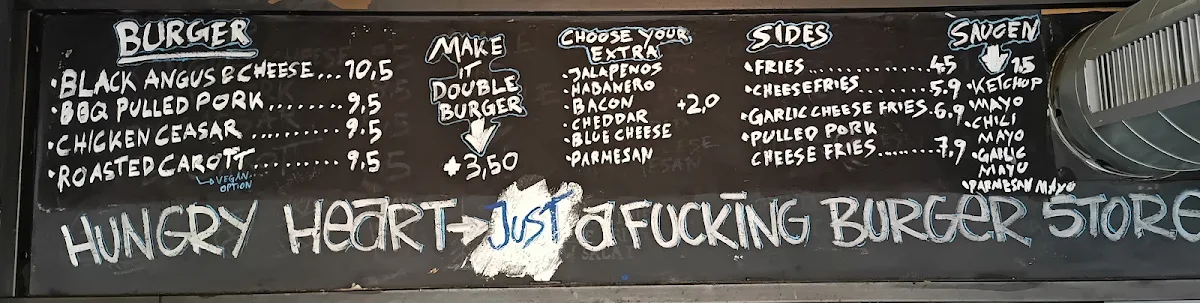 BURGER
BLACK ANGUS & CHEESE...10,5
BBQ PULLED PORK........9,5
CHICKEN CEASAR..........9.5
ROASTED CAROTT.........9,5
VEGAN
OPTION
MAKE
IT
DOUBLE
BURGER
+3,50
CHOOSE YOUR
EXTRA
JALAPENOS
HABANERO
BACON +2,0
CHEDDAR
BLUE CHEESE
PARMESAN
SIDES
FRIES...............4,5
CHEESEFRIES..........5.9
GARLICCHEESE FRIES.6,9
PULLED PORK
CHEESE FRIES........7,9
SAUCEN
1,5
KETCHUP
MAYO
CHILI
MAYO
GARLIC
MAYU
PARMESAN MAYO
HUNGRY HEART→JUST a FUCKING BURGER STORE